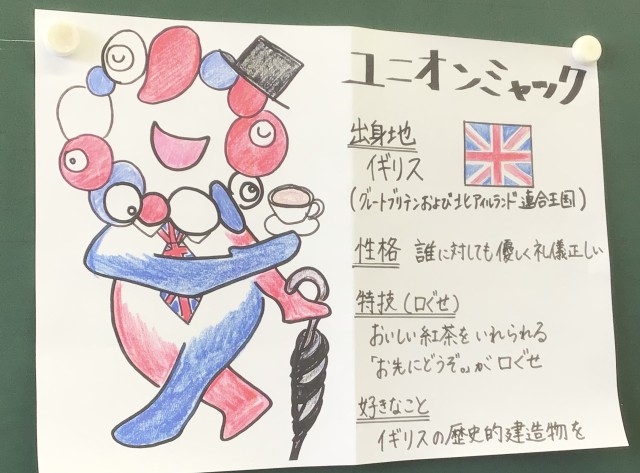 ユニオンミャック
出身地
イギリス
(グレートブリテンおよび北アイルランド連合王国)
性格 誰に対しても優しく礼儀正しい
特技(口ぐせ)
おいしい紅茶をいれられる
「お先にどうぞ。」が口ぐせ
好きなこと
イギリスの歴史的建造物を